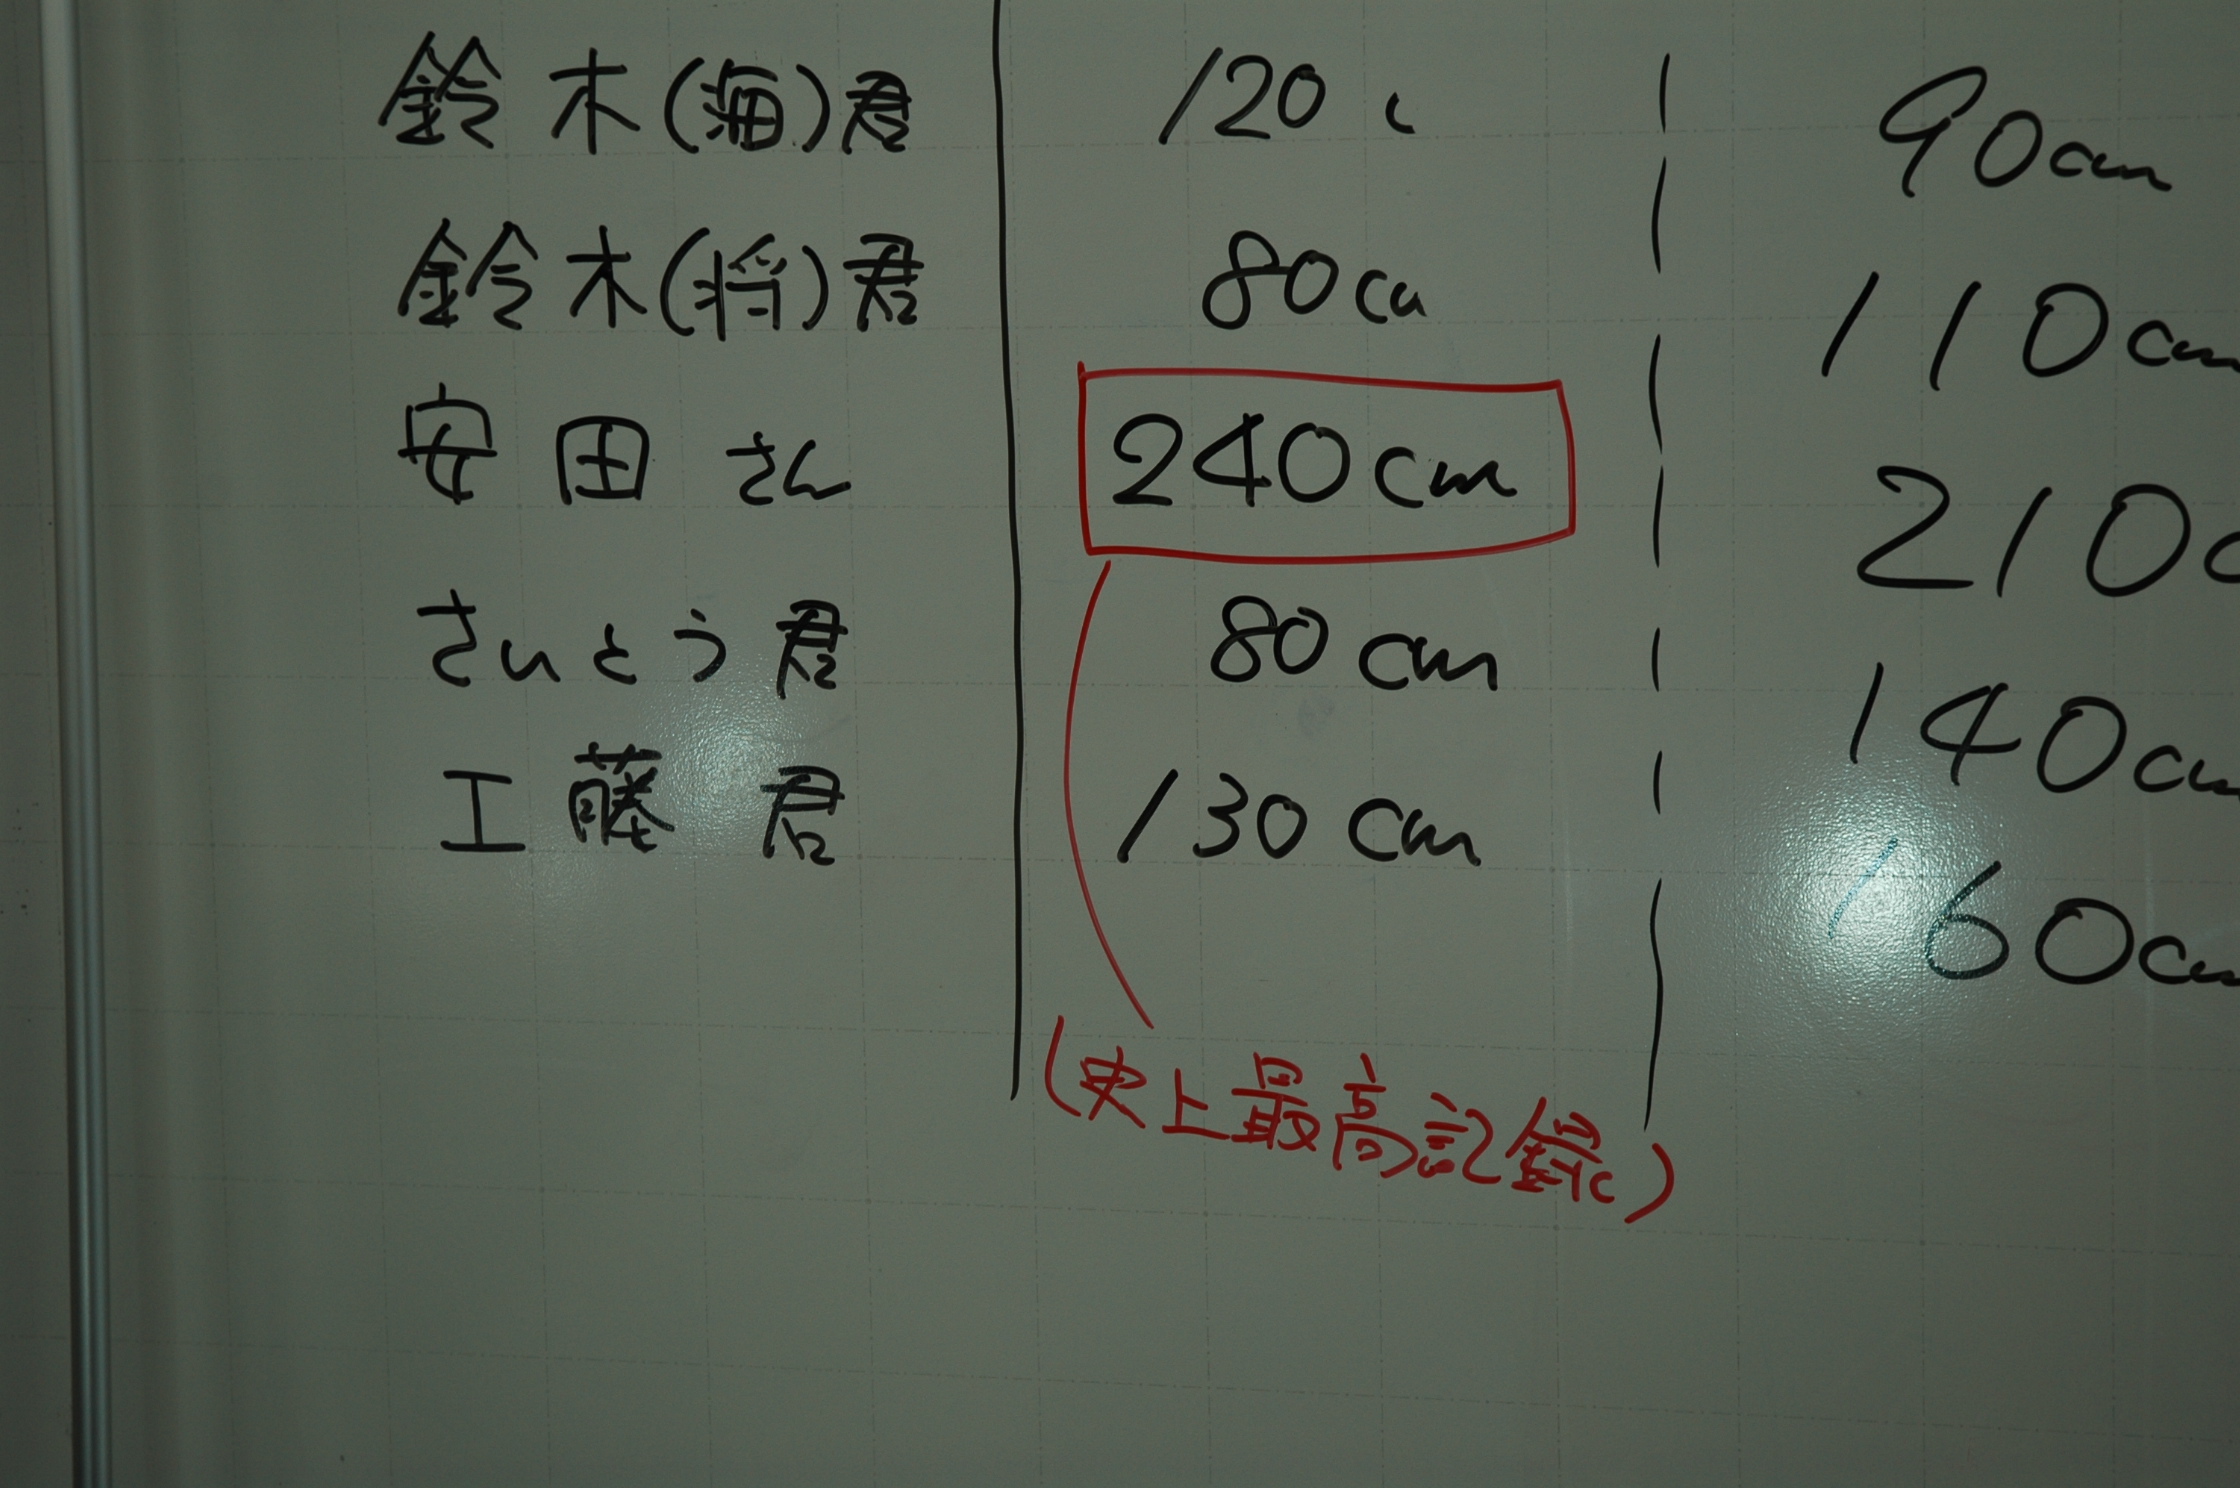 鈴木(海)君 120 c 90cm
鈴木(将)君 80cm 110cm
安田さん 240cm 210c
さいとう君 80cm 140cm
工藤君 130cm 160cm
(史上最高記録)